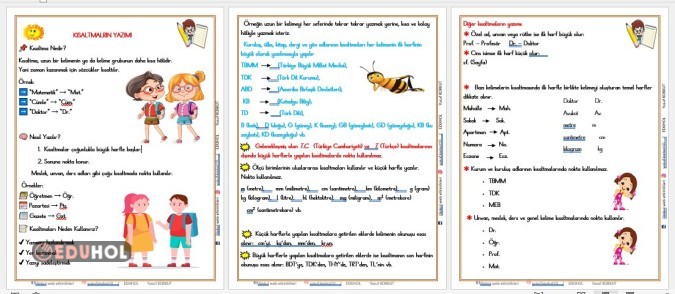 KISALTMALRIN YAZIMI
Kısaltma Nedir?
Kısaltma, uzun bir kelimenin ya da kelime grubunun daha kısa hâlidir.
Yani zaman kazanmak için sözcükler kısaltılır.
Örnek:
"Matematik" → "Mat."
"Cümle" →
"Doktor" → "Dr."
Nasıl Yazılır?
1. Kısaltmalar çoğunlukla büyük harfle başlar.
2. Sonuna nokta konur.
Meslek, unvan, ders adları gibi çoğu kısaltmada nokta kullanılır.
Örnekler:
Öğretmen → Öğr.
Pazartesi →
Gazete →
Kısaltmaları Neden Kullanırız?
EDUHOL
Örneğin uzun bir kelimeyi her seferinde tekrar tekrar yazmak yerine, kısa ve kolay
hâliyle yazmak isteriz.
Kuruluş, ülke, kitap, dergi ve yön adlarının kısaltmaları her kelimenin ilk harfinin
büyük olarak yazılmasıyla yapılır
TBMM → (Türkiye Büyük Millet Meclisi),
TDK → (Türk Dil Kurumu),
ABD → (Amerika Birleşik Devletleri),
KB → (Kutadgu Bilig),
TD → (Türk Dili),
B (batı), D (doğu), G (güney), K (kuzey), GB (güneybatı), GD (güneydoğu), KB (kuzeybatı), KD (kuzeydoğu) vb.
Gelenekleşmiş olan T.C. (Türkiye Cumhuriyeti) ve T. (Türkçe) kısaltmalarının
dışında büyük harflerle yapılan kısaltmalarda nokta kullanılmaz.
Ölçü birimlerinin uluslararası kısaltmaları kullanılır ve küçük harfle yazılır.
Nokta kullanılmaz.
m (metre), mm (milimetre) cm (santimetre), km (kilometre), g (gram)
kg (kilogram), l (litre), hl (hektolitre), mg (miligram), m² (metrekare)
cm² (santimetrekare) vb.
Küçük harflerle yapılan kısaltmalara getirilen eklerde kelimenin okunuşu esas
alınır: cm'yi, kg'dan, mm'den,
Büyük harflerle yapılan kısaltmalara getirilen eklerde ise kısaltmanın son harfinin
okunuşu esas alınır: BDT'ye, TDK'den, THY'de, TRT'den, TL'nin vb.
Diğer kısaltmaların yazımı
Özel ad, unvan veya rütbe ise ilk harf büyük olur:
Prof. – Profesör Dr. – Doktor
Cins isimse ilk harf küçük olur.
sf. (Sayfa)
Bazı kelimelerin kısaltmasında ilk harfle birlikte kelimeyi oluşturan temel harfler
dikkate alınır.
Mahalle → Mah.
Sokak → Sok.
Apartman → Apt.
Numara → No.
Eczane → Ecz.
Doktor Dr.
Avukat Av.
metre m
santimetre cm
kilogram kg
Kurum ve kuruluş adlarının kısaltmalarında nokta kullanılmaz.
TBMM
TDK
MEB
Unvan, meslek, ders ve genel kelime kısaltmalarında nokta kullanılır.
Dr.
Öğr.
Prof.
Mat.